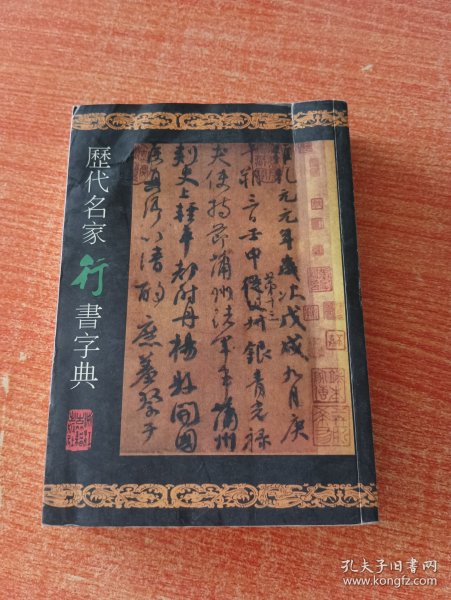 歷代名家行書字典
維乾元元年歲次戊戌九月庚
午朔三日壬申第十三叔銀青光祿
夫使持節蒲州諸軍事蒲州
刺史上輕車都尉丹楊縣開國
侯真卿以清酌庶羞祭于
孔夫子旧书网
www.kongfz.com